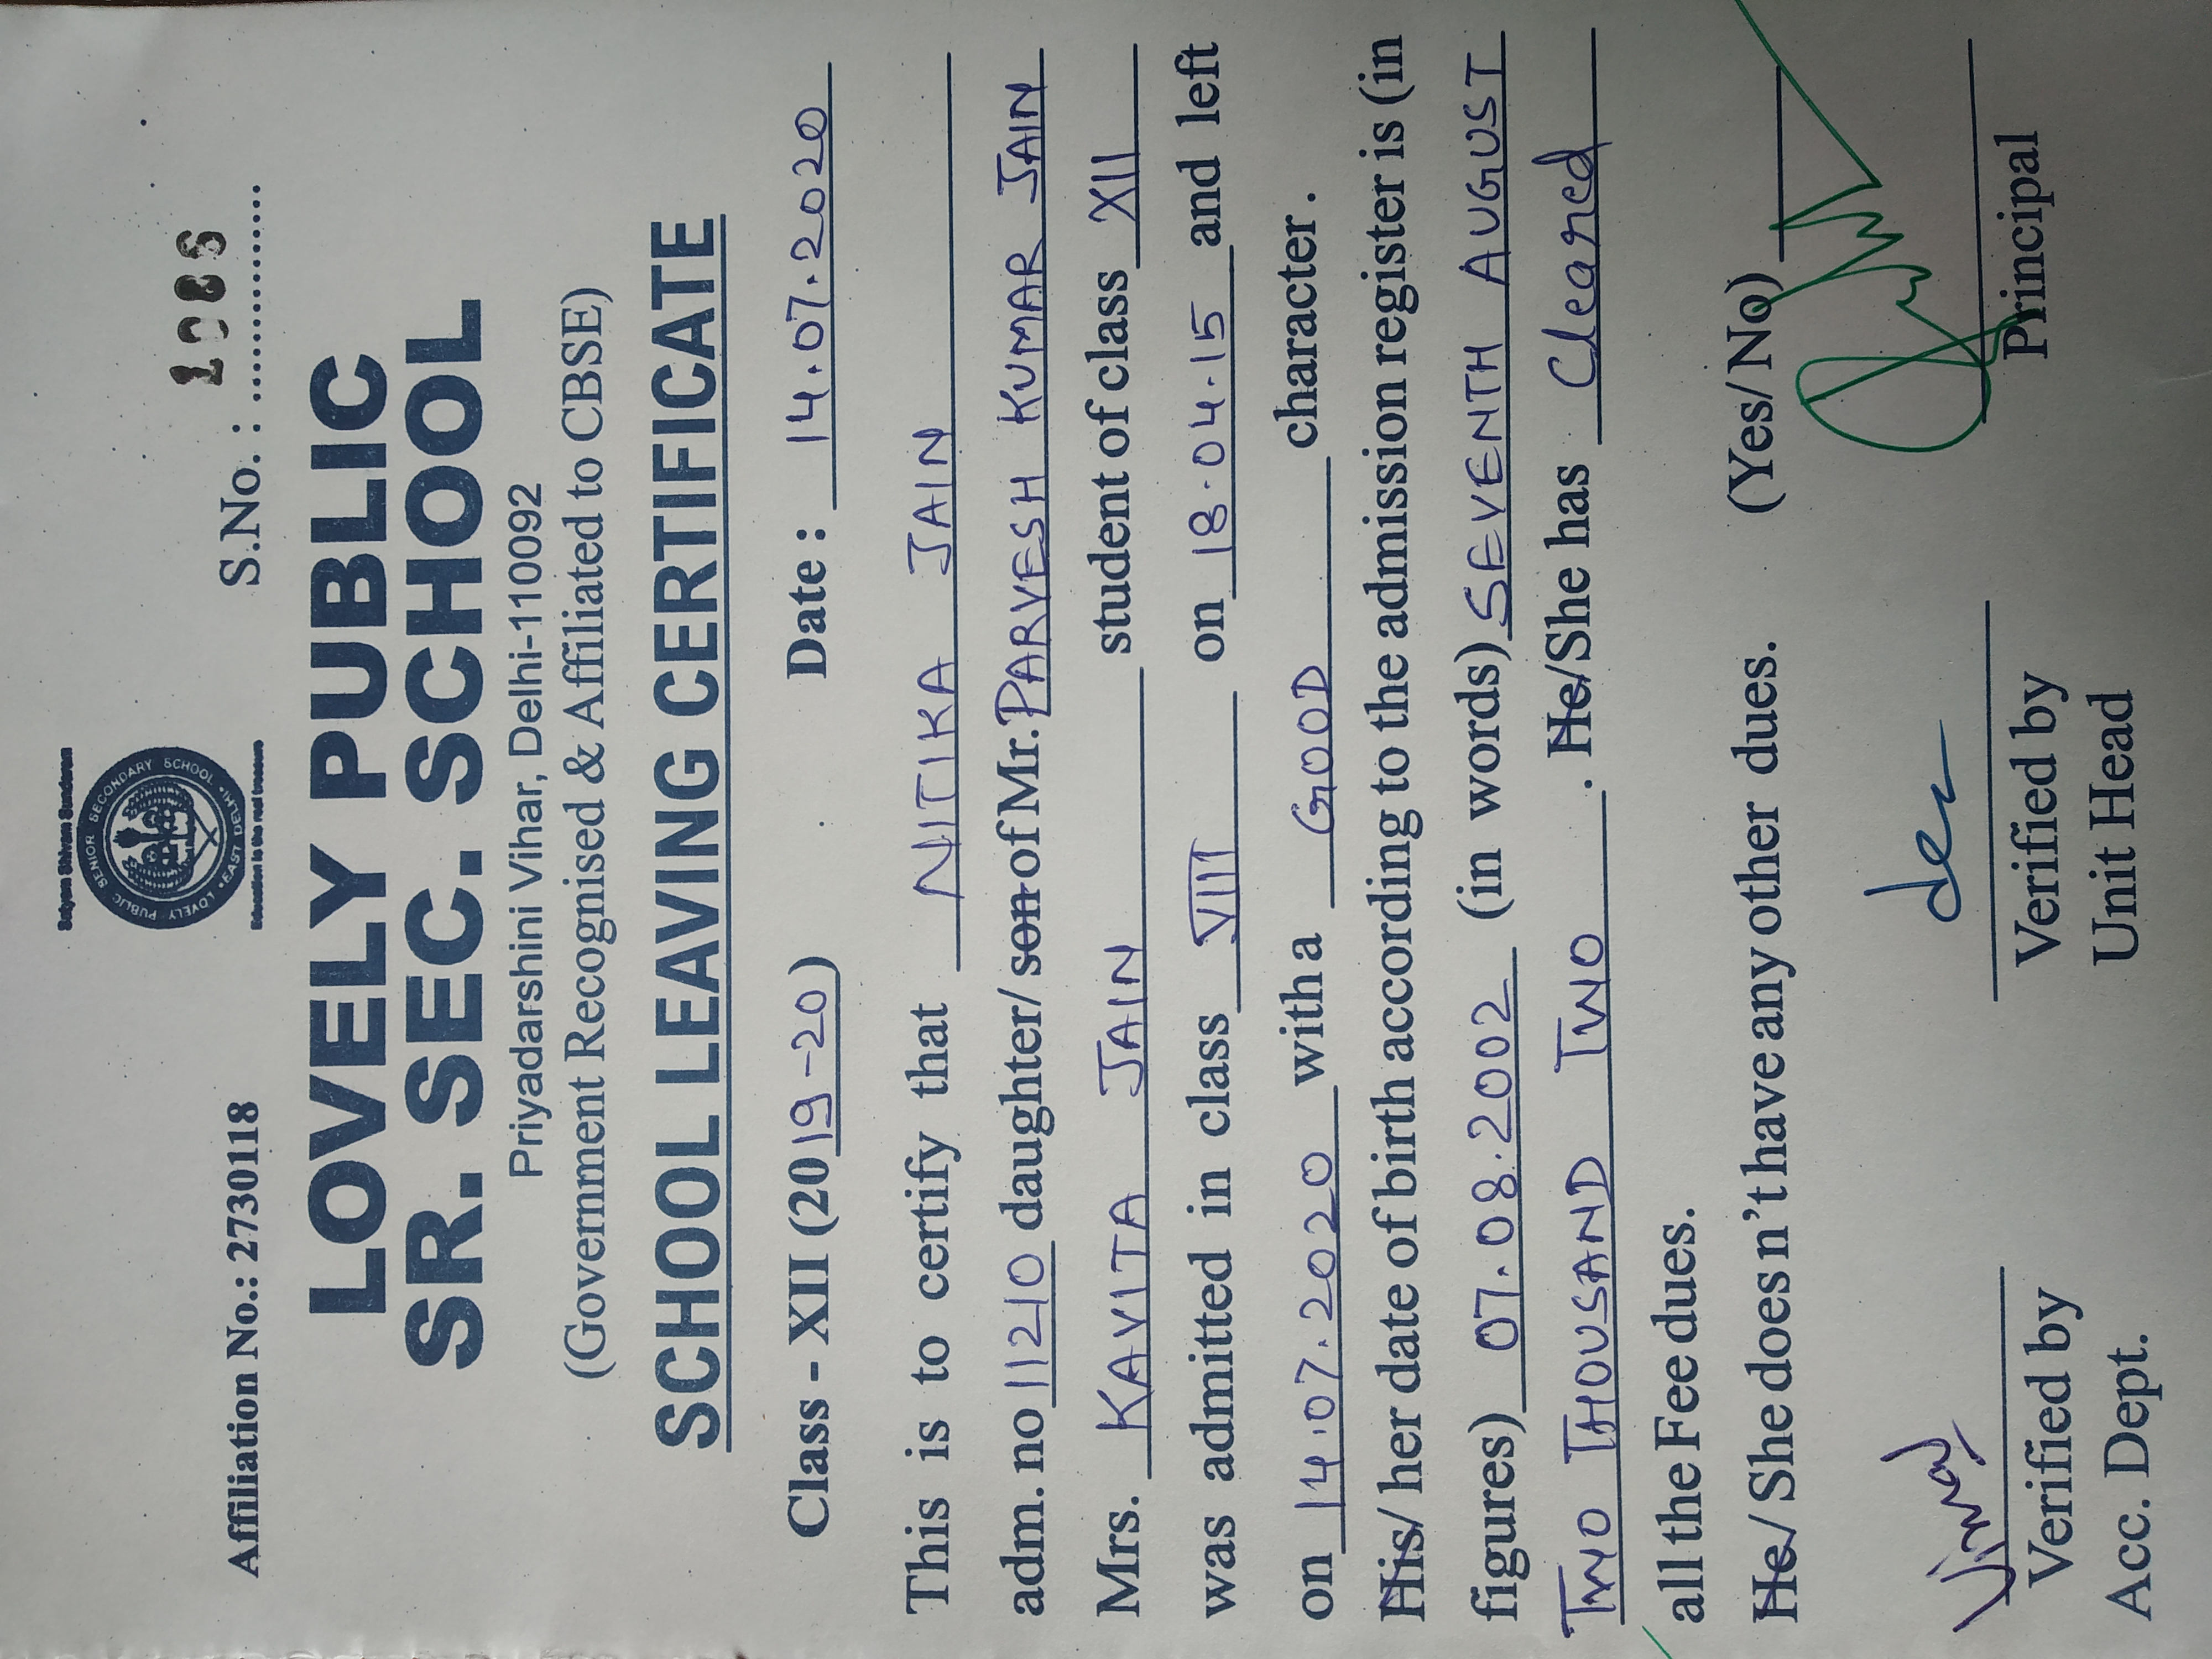 Satyam Shivam Sundaram
LOVELY PUBLIC SENIOR SECONDARY SCHOOL • EAST DELHI •
Education is the real treasure
Affiliation No.: 2730118 S.No. : 1086
LOVELY PUBLIC
SR. SEC. SCHOOL
Priyadarshini Vihar, Delhi-110092
(Government Recognised & Affiliated to CBSE)
SCHOOL LEAVING CERTIFICATE
Class - XII (2019-20) Date : 14.07.2020
This is to certify that NITIKA JAIN
adm. no 11210 daughter/ son of Mr. PARVESH KUMAR JAIN
Mrs. KAVITA JAIN student of class XII
was admitted in class VIII on 18.04.15 and left
on 14.07.2020 with a GOOD character.
His/ her date of birth according to the admission register is (in
figures) 07.08.2002 (in words) SEVENTH AUGUST
TWO THOUSAND TWO . He/She has Cleared
all the Fee dues.
He/ She does n't have any other dues. (Yes/No)
Verified by Verified by Principal
Acc. Dept. Unit Head